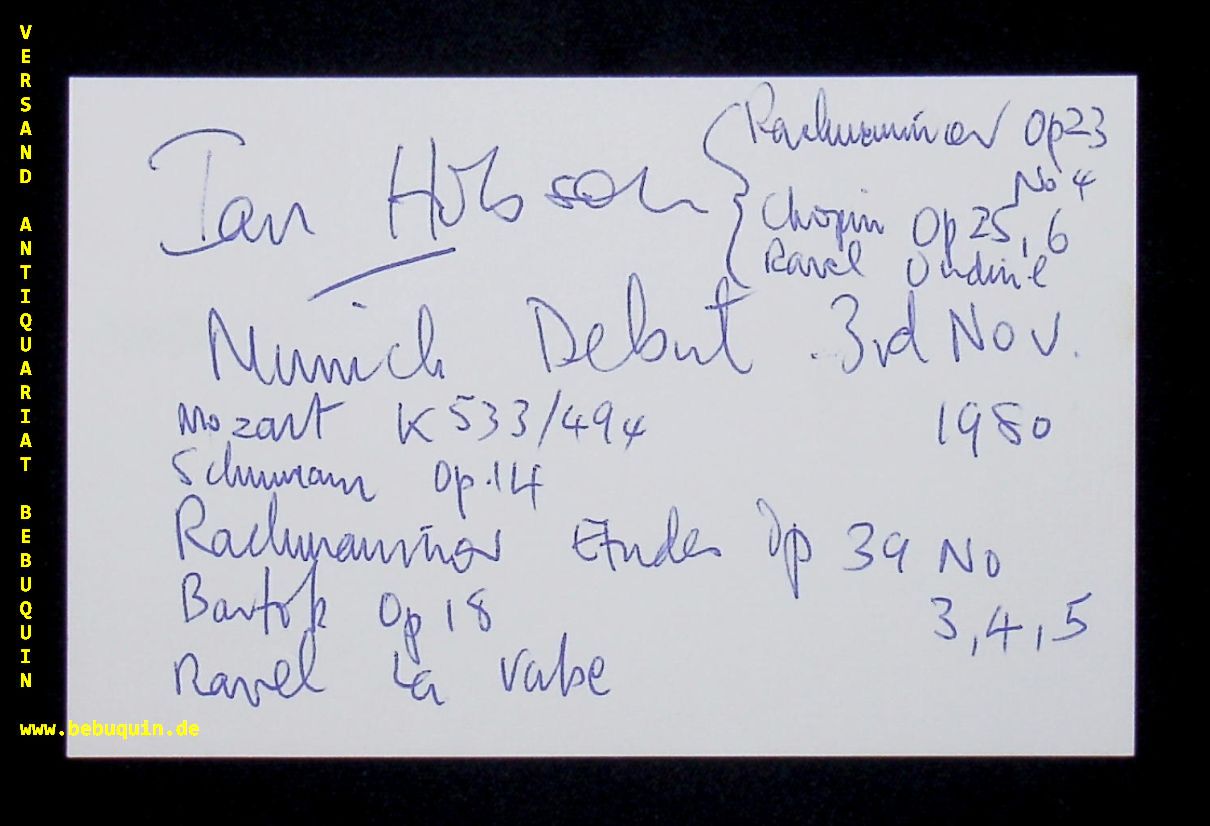 VERSAND ANTIQUARIAT BEBUQUIN
Ian Hobson
Rachmaninov Op23
No 4
Chopin Op 25, 6
Ravel Ondine
Munich Debut . 3rd Nov.
1980
Mozart K 533/494
Schumann Op. 14
Rachmaninov Etudes Op 39 No
3, 4, 5
Bartok Op 18
Ravel La Valse
www.bebuquin.de